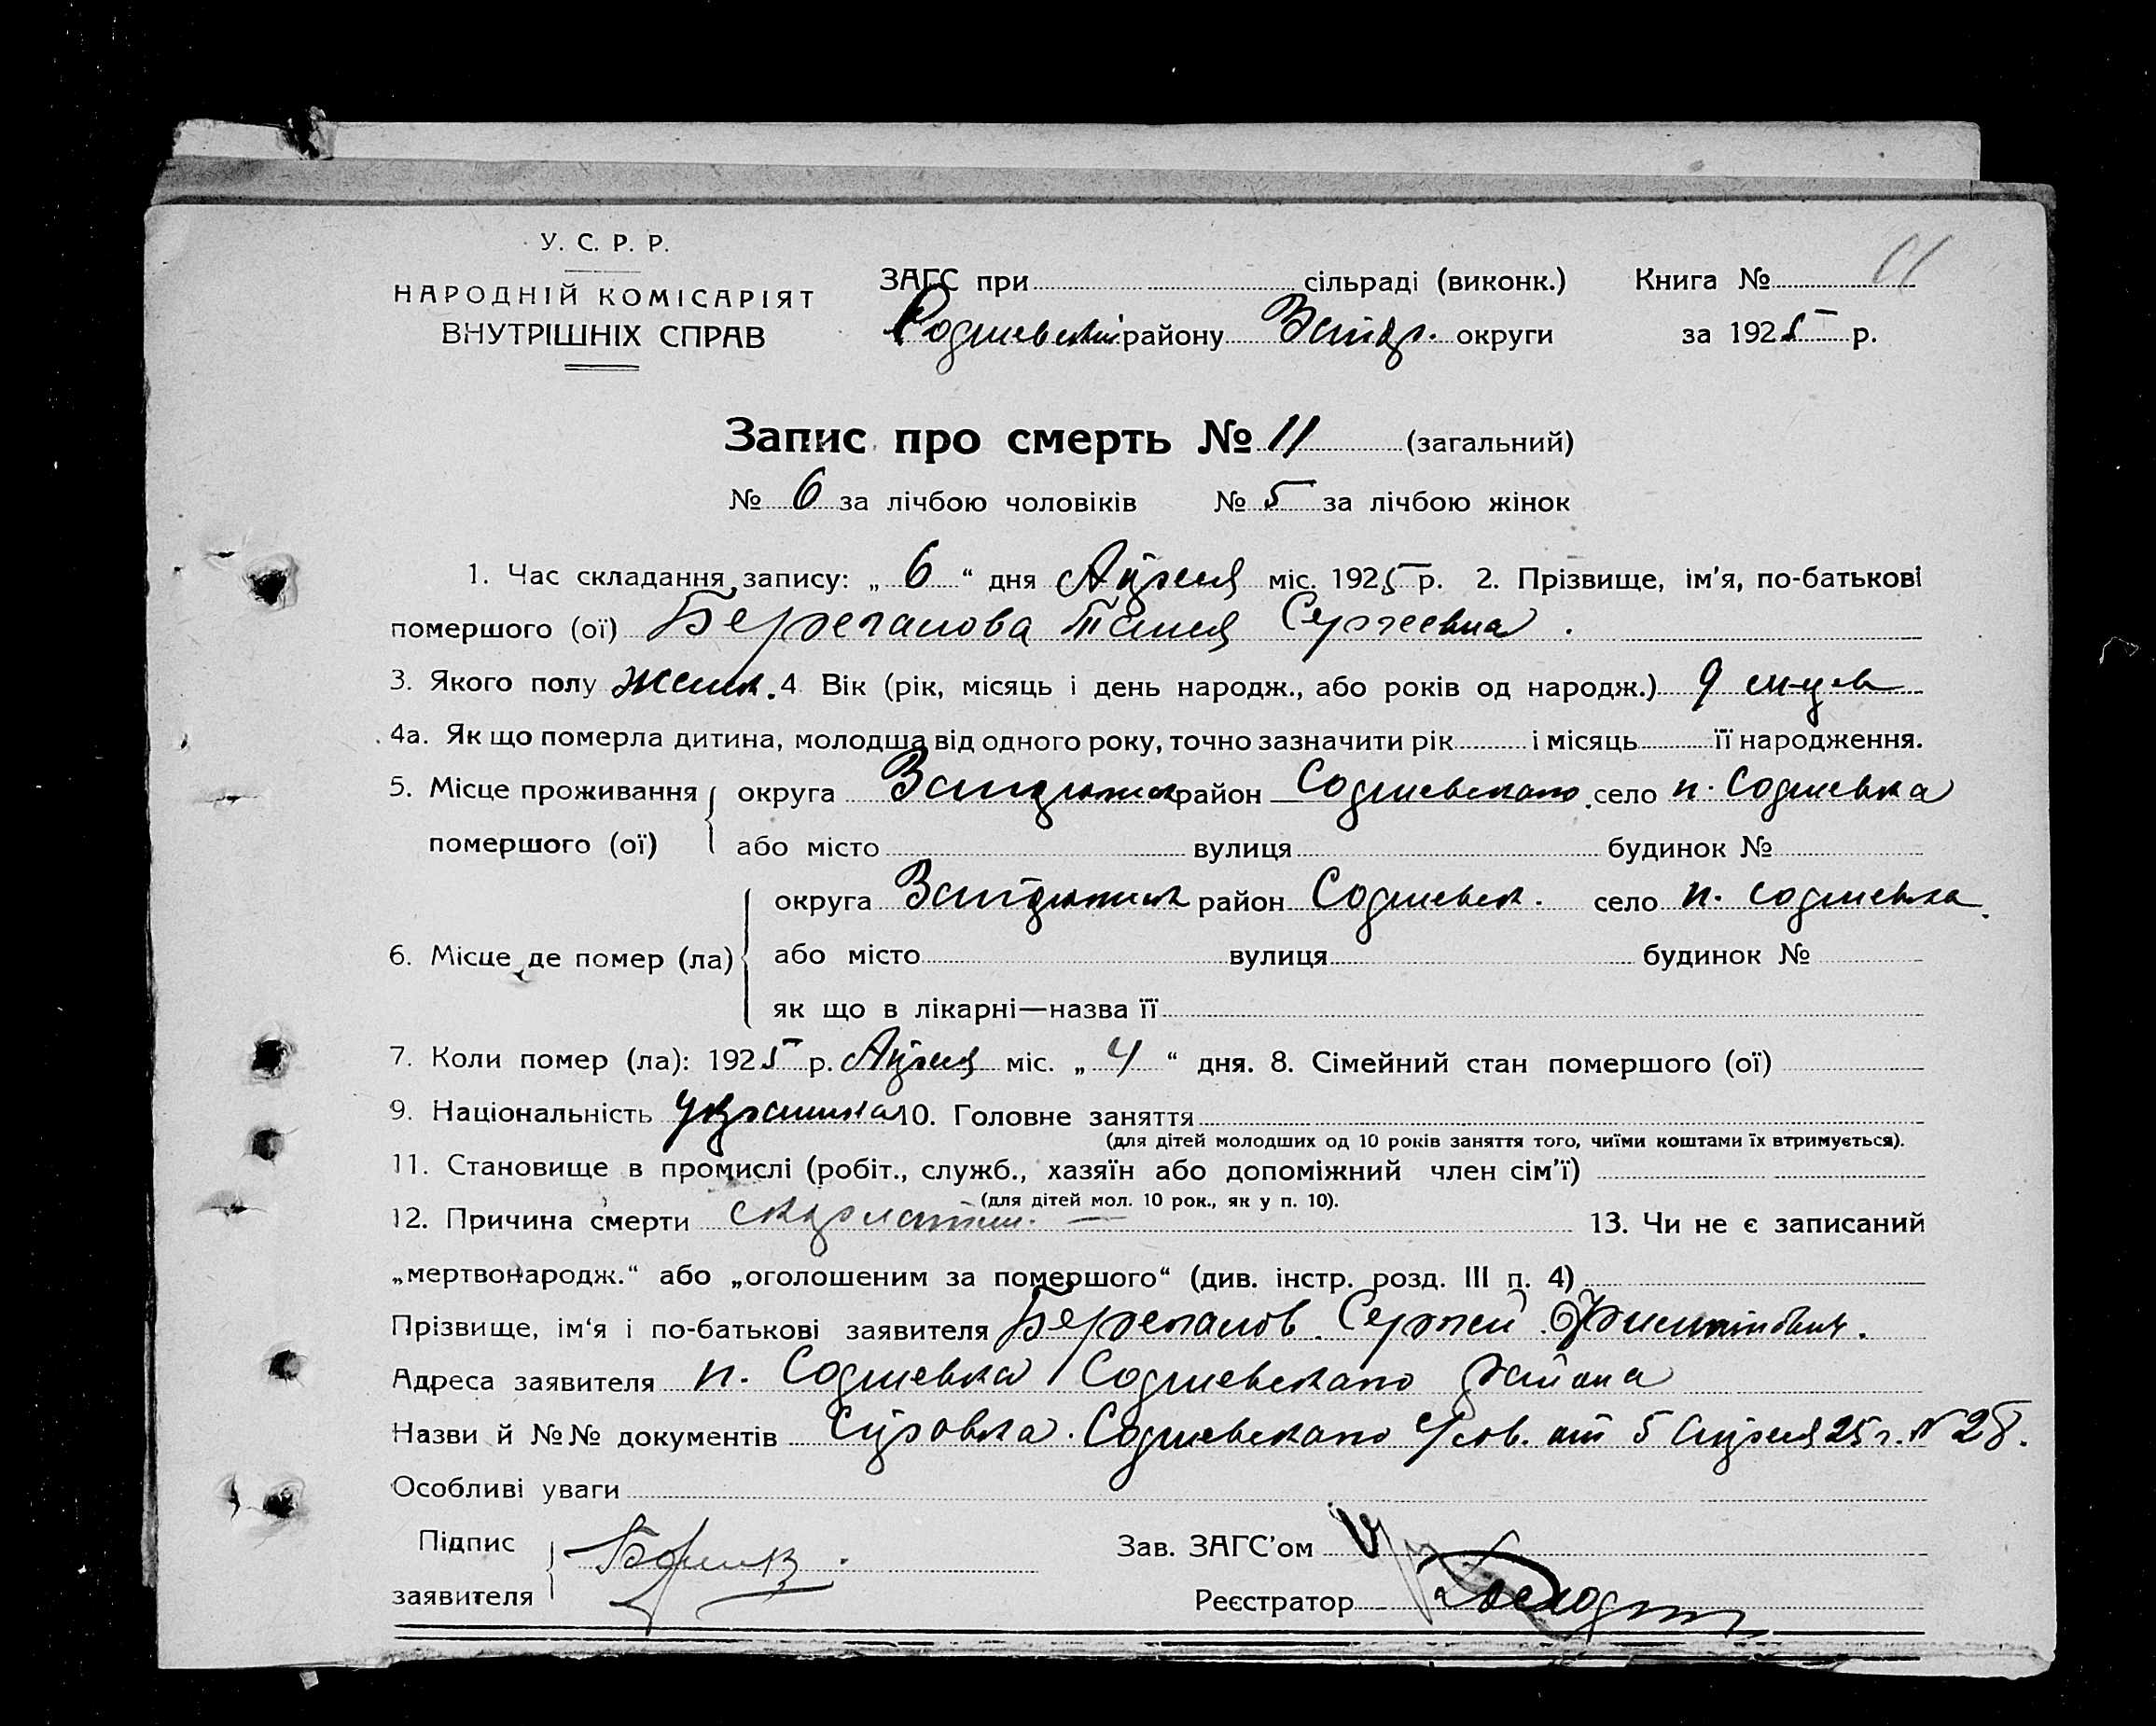 У. С. Р. Р.
НАРОДНІЙ КОМІСАРІЯТ
ВНУТРІШНІХ СПРАВ
ЗАГС при сільраді (виконк.) Книга №
району округи за 1925 р.
Запис про смерть № 11 (загальний)
№ 6 за лічбою чоловіків № 5 за лічбою жінок
1. Час складання запису: „ 6 “ дня Апреля міс. 1925 р. 2. Прізвище, ім'я, по-батькові
помершого (ої) Таися Сергеевна.
3. Якого полу женск. 4 Вік (рік, місяць і день народж., або років од народж.) 9 м-цев
4а. Як що померла дитина, молодша від одного року, точно зазначити рік і місяць її народження.
5. Місце проживання округа район село п. Софиевка
помершого (ої) або місто вулиця будинок №
округа район Софиевск. село п. Софиевка
6. Місце де помер (ла) або місто вулиця будинок №
як що в лікарні—назва її
7. Коли помер (ла): 1925 р. Апреля міс. „ 4 “ дня. 8. Сімейний стан помершого (ої)
9. Національність украинка 10. Головне заняття
(для дітей молодших од 10 років заняття того, чиїми коштами їх втримується).
11. Становище в промислі (робіт., служб., хазяїн або допоміжний член сім'ї)
(для дітей мол. 10 рок., як у п. 10).
12. Причина смерти скарлатин. — 13. Чи не є записаний
„мертвонародж.“ або „оголошеним за помершого“ (див. інстр. розд. III п. 4)
Прізвище, ім'я і по-батькові заявителя Сергей
Адреса заявителя п. Софиевка Софиевского района
Назви й №№ документів Справка Софиевского от 5 Апреля 25 г. № 28.
Особливі уваги
Підпис
Зав. ЗАГС'ом
заявителя
Реєстратор